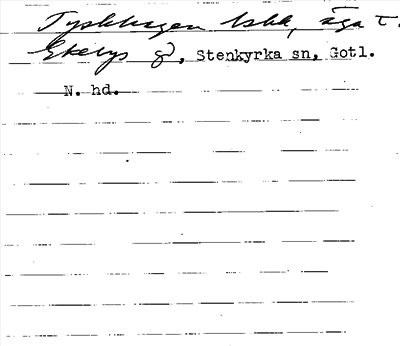 Tyskhagen bshd, äga t.
Ekelys gd, Stenkyrka sn, Gotl.
N. hd.